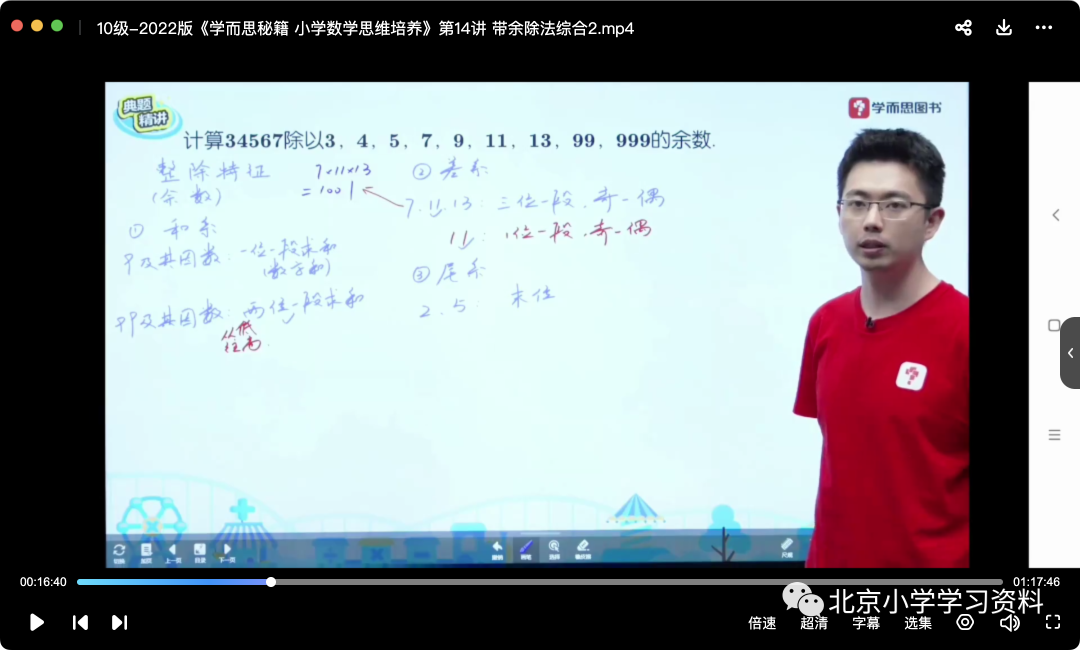 10级-2022版《学而思秘籍 小学数学思维培养》第14讲 带余除法综合2.mp4
典题
精讲
学而思图书
计算34567除以3，4，5，7，9，11，13，99，999的余数.
整除特征
(余数)
7×11×13
=1001
① 和系
9及其因数：一位一段求和
(数字和)
99及其因数：两位一段求和
从低
往高
② 差系
7.11.13：三位一段.奇-偶
11：1位一段.奇-偶
③ 尾系
2.5： 末位
上一页
下一页
00:16:40
01:17:46
北京小学学习资料
倍速
超清
字幕
选集